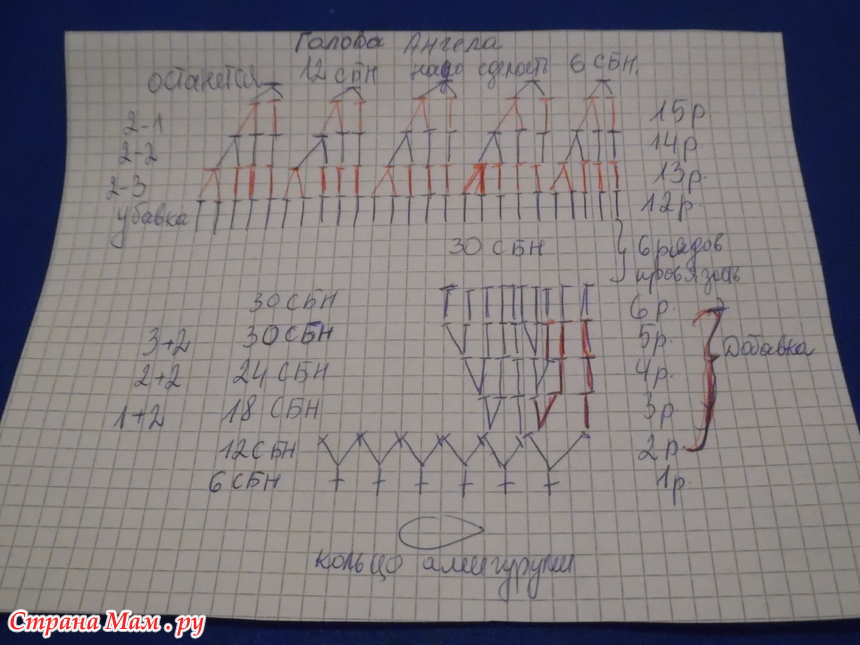 Голова Ангела
останется 12 СБН надо сделать 6 СБН.
2-1 15р
2-2 14р
2-3 13р.
убавка 12р.
30 СБН 6 рядов
провязать
30 СБН 6р.
3+2 30 СБН 5р.
2+2 24 СБН 4р. Добавка
1+2 18 СБН 3р
12 СБН 2р
6 СБН 1р.
кольцо амигуруми
Страна Мам.ру